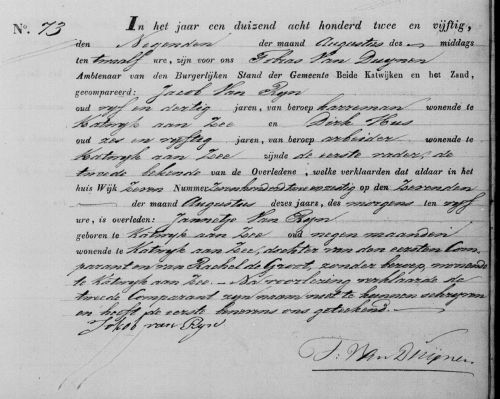 N°. 73 In het jaar een duizend acht honderd twee en vijftig,
den Negenden der maand Augustus des middags
ten twaalf ure, zijn voor ons Tobias Van Duijnen
Ambtenaar van den Burgerlijken Stand der Gemeente Beide Katwijken en het Zand,
gecompareerd: Jacob Van Ryn
oud vyf en dertig jaren, van beroep wonende te
Katwyk aan Zee en Dirk Hus
oud zes en vyftig jaren, van beroep arbeider wonende te
Katwyk aan Zee zijnde de eerste vader, de
tweede bekende van de Overledene, welke verklaarden dat aldaar in het
huis Wijk Zeven Nummer op den Zevenden
der maand Augustus dezes jaars, des morgens ten vyf
ure, is overleden: Jannetje Van Ryn
geboren te Katwyk aan Zee oud negen maanden
wonende te Katwyk aan Zee, dochter van den eersten Com-
parant en van Rachel de Groot, zonder beroep, wonende
te Katwyk aan Zee. Na voorlezing verklaarde de
tweede Comparant zyn naam niet te kunnen schryven
en heeft de eerste benevens ons geteekend.
Jakob van Ryn
T. Van Duijnen